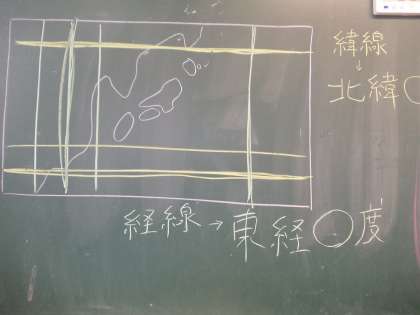 緯線
↓
北緯○
経線→東経○度